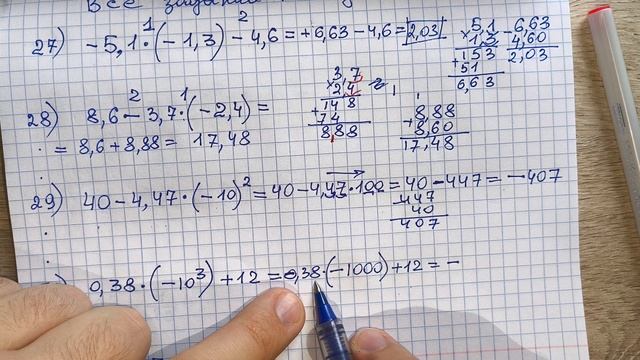 Все
27) -5,1·(-1,3)-4,6=+6,63-4,6=2,03
1 2
5,1
×1,3
+153
51
6,63
-6,63
4,60
2,03
28) 8,6-3,7·(-2,4)=
2 1
=8,6+8,88=17,48
3,7
×2,4
+148
74
8,88
+8,88
8,60
17,48
29) 40-4,47·(-10)²=40-4,47·100=40-447=-407
-447
40
407
) 0,38·(-10³)+12=0,38·(-1000)+12=-